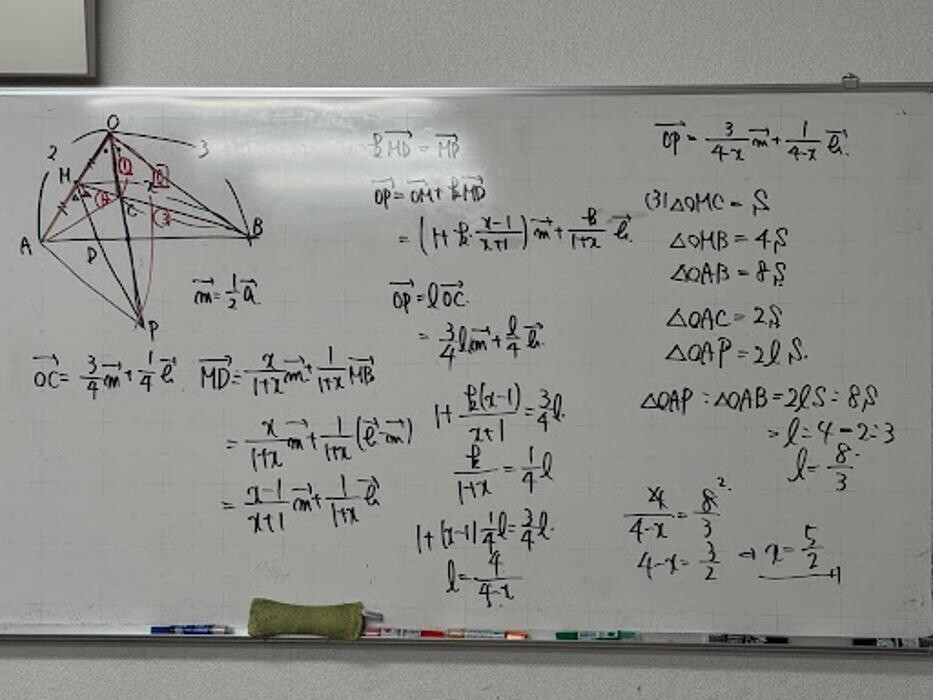 O
2
3
M
①
x
④
C
③
A
B
D
P
m⃗ = 1/2 a⃗.
OC⃗ = 3/4 m⃗ + 1/4 b⃗
MD⃗ = x/(1+x) m⃗ + 1/(1+x) MB⃗
= x/(1+x) m⃗ + 1/(1+x) (b⃗-m⃗)
= (x-1)/(x+1) m⃗ + 1/(1+x) b⃗
kMD⃗ = MP⃗
OP⃗ = OM⃗ + kMD⃗
= (1+k·(x-1)/(x+1)) m⃗ + k/(1+x) b⃗.
OP⃗ = lOC⃗.
= 3/4 l m⃗ + l/4 b⃗.
1+ k(x-1)/(x+1) = 3/4 l.
k/(1+x) = 1/4 l
1+(x-1) 1/4 l = 3/4 l.
l = 4/(4-x)
OP⃗ = 3/(4-x) m⃗ + 1/(4-x) b⃗.
(3) △OMC = S
△OMB = 4S
△OAB = 8S
△OAC = 2S
△OAP = 2l S.
△OAP : △OAB = 2lS : 8S
= l : 4 = 2 : 3
l = 8/3
4/(4-x) = 8/3 2
4-x = 3/2 → x = 5/2